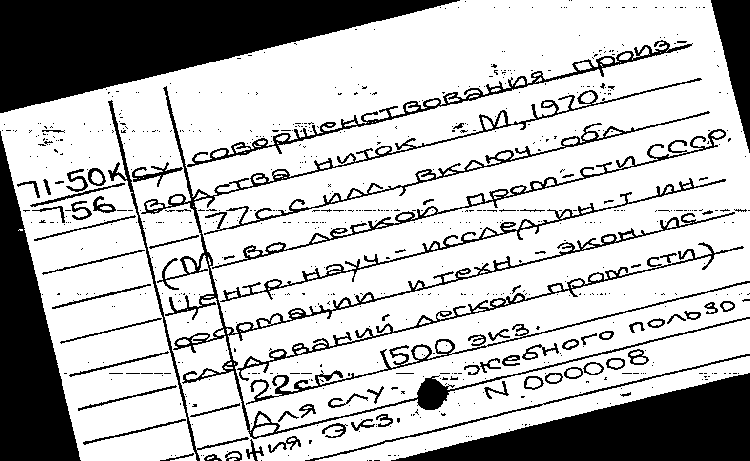 71-50К су совершенствования произ-
756 водства ниток. - М., 1970.
77с. с илл., включ. обл.
(М-во легкой пром-сти СССР.
Центр. науч.- исслед. ин-т ин-
формации и техн. - экон. ис-
следований легкой пром-сти)
22см. 1500 экз.
Для слу- жебного пользо-
вания. Экз. N 000008